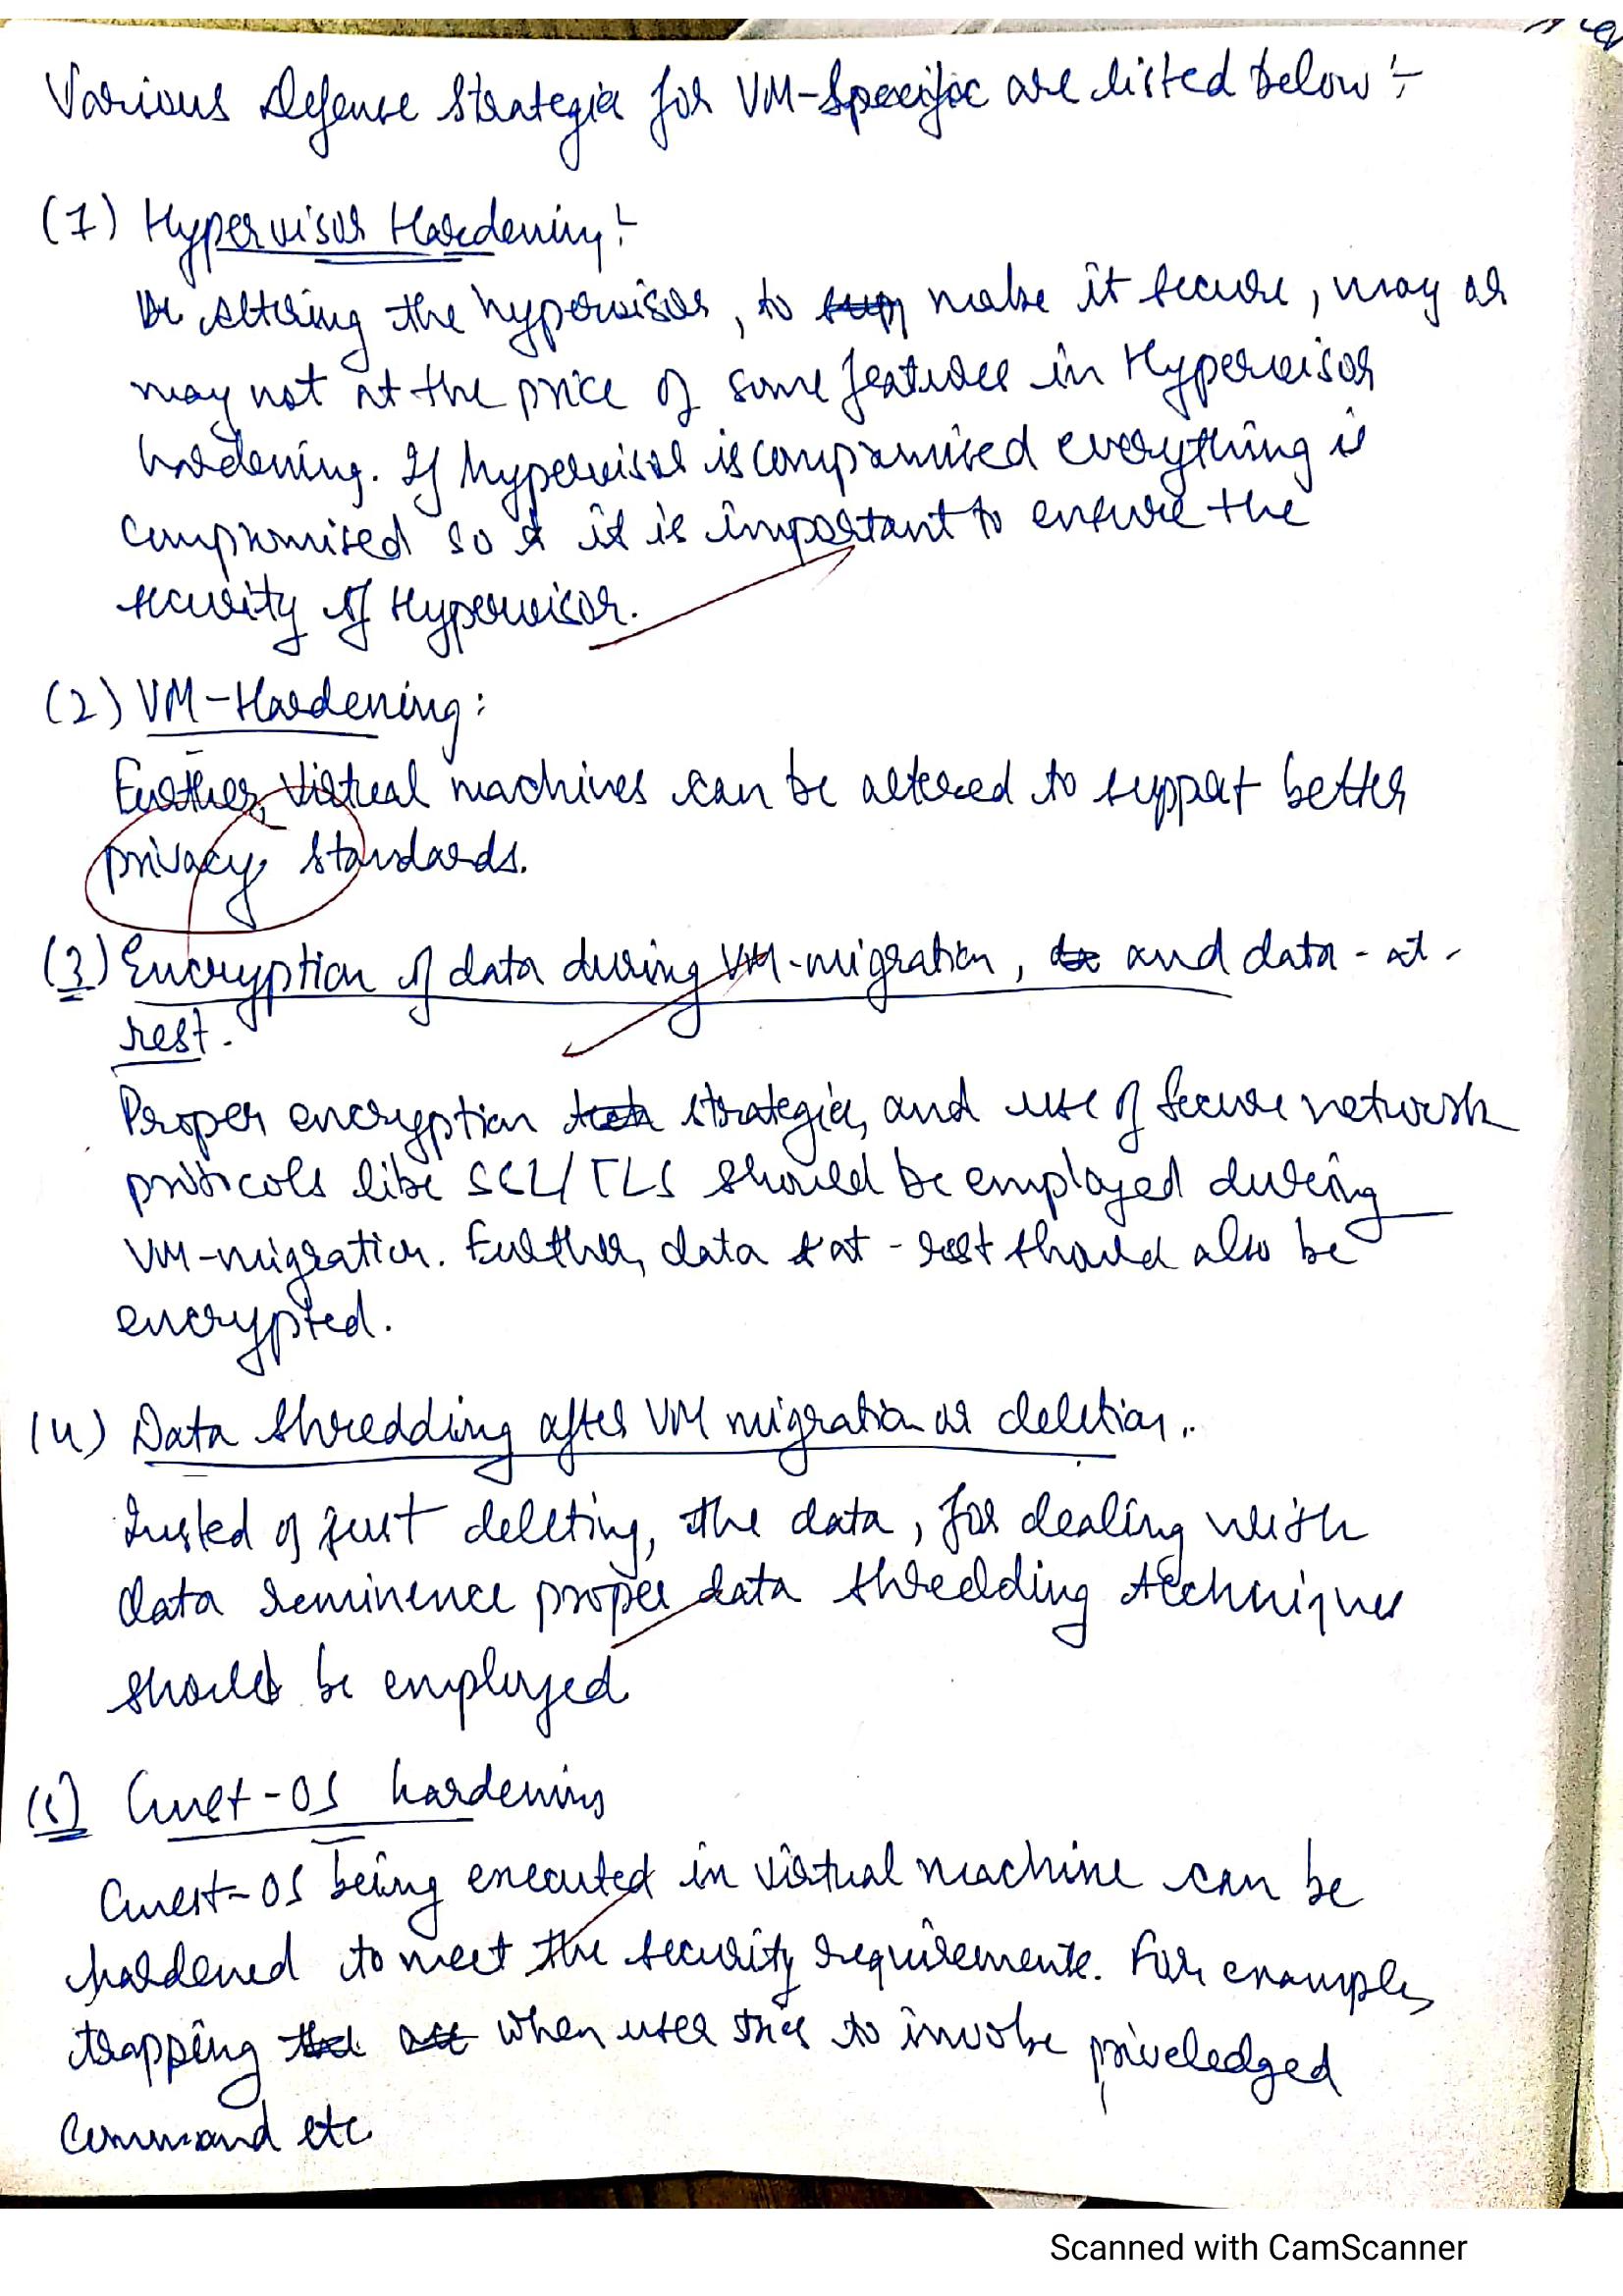 Various Defense Strategies for VM-Specific are listed below :-
(1) Hypervisor Hardening :-
altering the hypervisor, to make it secure, may or
may not at the price of some features in Hypervisor
hardening. If hypervisor is compromised everything is
compromised so it is important to ensure the
security of Hypervisor.
(2) VM-Hardening :
Further, virtual machines can be altered to support better
privacy standards.
(3) Encryption of data during VM-migration, and data-at-
rest.
Proper encryption strategies, and use of secure network
protocols like SSL/TLS should be employed during
VM-migration. Further, data at-rest should also be
encrypted.
(4) Data shredding after VM migration or deletion.
Insted of just deleting, the data, for dealing with
data reminence proper data shredding techniques
should be employed
(5) Guest-OS hardening
Guest-OS being executed in virtual machine can be
hardened to meet the security requirements. For example,
trapping when user tries to invoke priveledged
Command etc
Scanned with CamScanner